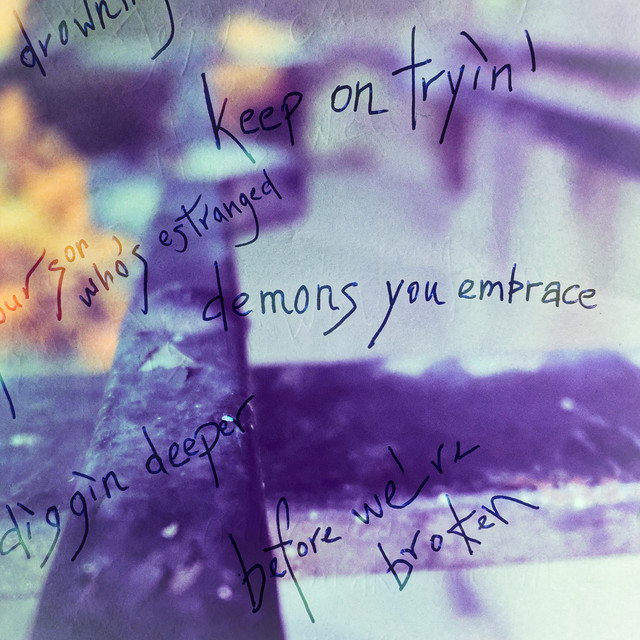 drownin
keep on tryin'
our son
who's estranged
demons you embrace
diggin deeper
before we're
broken